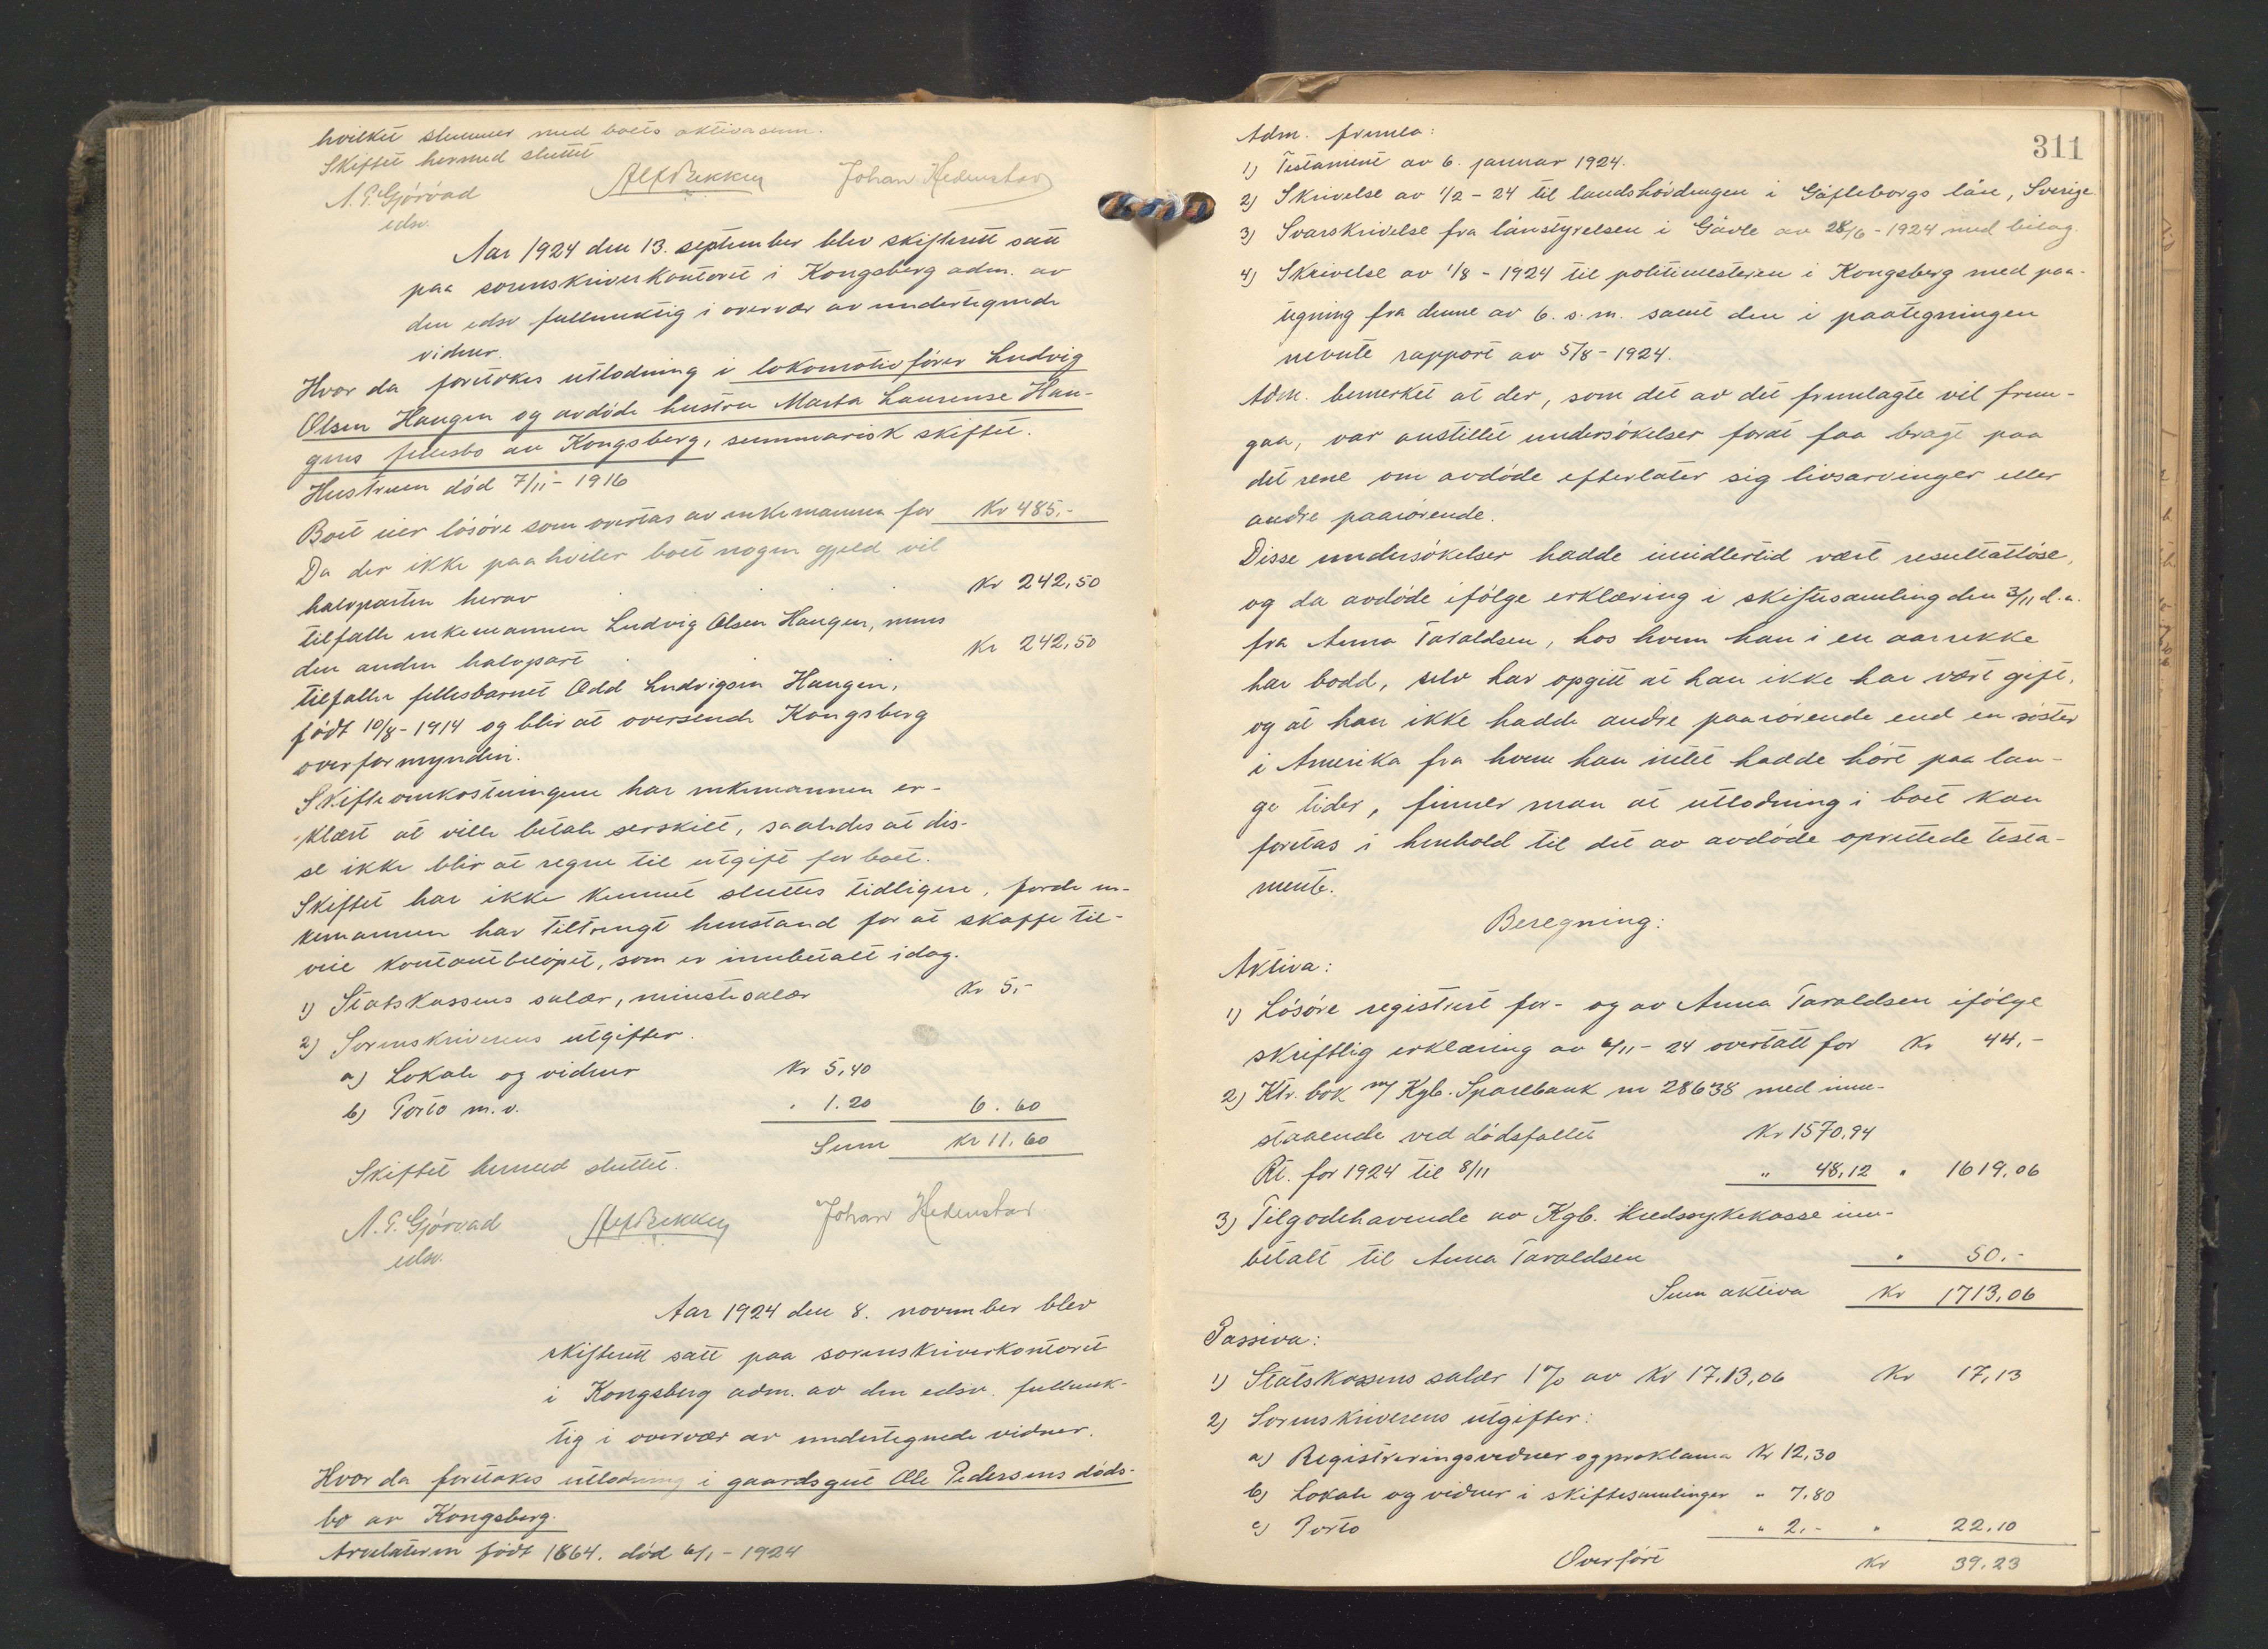 hvilket stemmer med boets aktivasum.
Skiftet hermed sluttet
N. P. Gjørvad Alf Bekken Johan Hedenstad
edsv.
Aar 1924 den 13. september blev skifterett satt
paa sorenskriverkontoret i Kongsberg adm. av
den edsv fullmektig i overvær av undertegnede
vidner.
Hvor da foretokes utlodning i lokomotivfører Ludvig
Olsen Haugen og avdøde hustru Marta Laurense Hau-
gens fellesbo av Kongsberg, summarisk skiftet.
Hustruen død 7/11 - 1916
Boet eier løsøre som overtas av enkemannen for Kr 485.-
Da der ikke paahviler boet nogen gjeld vil
halvparten herav Kr 242,50
tilfalle enkemannen Ludvig Olsen Haugen, mens
den anden halvpart Kr 242,50
tilfaller fellesbarnet Odd Ludvigsen Haugen,
født 10/8 - 1914 og blir at oversende Kongsberg
overformynderi.
Skifteomkostningene har enkemannen er-
klært at ville betale serskilt, saaledes at dis-
se ikke blir at regne til utgift for boet.
Skiftet har ikke kunnet sluttes tidligere, fordi en-
kemannen har tiltrengt henstand for at skaffe til-
veie kontantbeløpet, som er innbetalt idag.
1) Statskassens salær, minstesalær Kr 5,-
2) Sorenskriverens utgifter.
a) Lokale og vidner Kr 5,40
b) Porto m.v. " 1.20 6.60
Sum Kr 11.60
Skiftet hermed sluttet.
N. P. Gjørvad Alf Bekken Johan Hedenstad.
edsv.
Aar 1924 den 8. november blev
skifterett satt paa sorenskriverkontoret
i Kongsberg adm. av den edsv. fullmek-
tig i overvær av undertegnede vidner.
Hvor da foretokes utlodning i gaardsgut Ole Pedersens døds-
bo av Kongsberg.
Arvelateren født 1864. død 6/1 - 1924
311
Adm. fremla:
1) Testament av 6. januar 1924.
2) Skrivelse av 1/2 - 24 til landshövdingen i Gäfleborgs län, Sverige
3) Svarskrivelse fra länstyrelsen i Gävle av 28/6 - 1924 med bilag.
4) Skrivelse av 1/8 - 1924 til politimesteren i Kongsberg med paa-
tegning fra denne av 6. s.m. samt den i paategningen
nevnte rapport av 5/8 - 1924.
Adm. bemerket at der, som det av det fremlagte vil frem-
gaa, var anstillet undersøkelser forat faa bragt paa
det rene om avdøde efterlater sig livsarvinger eller
andre paarørende.
Disse undersøkelser hadde imidlertid vært resultatløse,
og da avdøde ifølge erklæring i skiftesamling den 3/11 d.a.
fra Anna Taraldsen, hos hvem han i en aarrekke
har bodd, selv har opgitt at han ikke har vært gift,
og at han ikke hadde andre paarørende end en søster
i Amerika fra hvem han intet hadde hørt paa lan-
ge tider, finner man at utlodning i boet kan
foretas i henhold til det av avdøde oprettede testa-
mente.
Beregning:
Aktiva:
1) Løsøre registrert for- og av Anna Taraldsen ifølge
skriftlig erklæring av 6/11 - 24 overtatt for Kr 44,-
2) Ktr. bok m/ Kgb. Sparebank nr 28638 med inne-
staaende ved dødsfallet Kr 1570,94
Rt. for 1924 til 8/11 " 48,12 " 1619,06
3) Tilgodehavende av Kgb. kredssykekasse inn-
betalt til Anna Taraldsen " 50.-
Sum aktiva Kr 1713,06
Passiva:
1) Statskassens salær 1% av Kr 17.13,06 Kr 17,13
2) Sorenskriverens utgifter:
a) Registreringsvidner og proklama Kr 12,30
b) Lokale og vidner i skiftesamlinger " 7,80
c) Porto " 2.- " 22.10
Overføre Kr 39.23